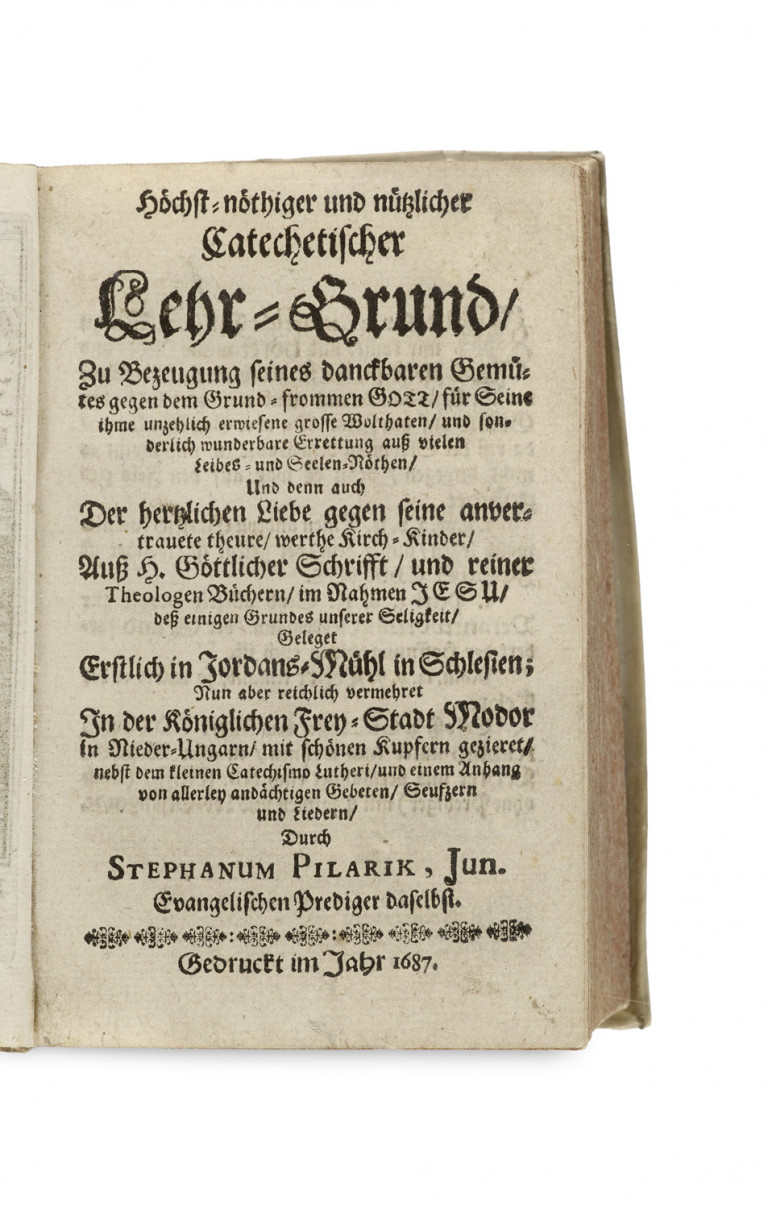 Höchst-nöthiger und nützlicher
Catechetischer
Lehr-Grund/
Zu Bezeugung seines danckbaren Gemü-
tes gegen dem Grund-frommen GOTT/ für Seine
ihme unzehlich erwiesene grosse Wolthaten/ und son-
derlich wunderbare Errettung auß vielen
Leibes- und Seelen-Nöthen/
Und denn auch
Der hertzlichen Liebe gegen seine anver-
trauete theure/ werthe Kirch-Kinder/
Auß H. Göttlicher Schrifft/ und reiner
Theologen Büchern/ im Nahmen JESU/
deß einigen Grundes unserer Seligkeit/
Geleget
Erstlich in Jordans-Mühl in Schlesien;
Nun aber reichlich vermehret
In der Königlichen Frey-Stadt Modor
in Nieder-Ungarn/ mit schönen Kupfern gezieret/
nebst dem kleinen Catechismo Lutheri/ und einem Anhang
von allerley andächtigen Gebeten/ Seufzern
und Liedern/
Durch
STEPHANUM PILARIK, Jun.
Evangelischen Prediger daselbst.
Gedruckt im Jahr 1687.